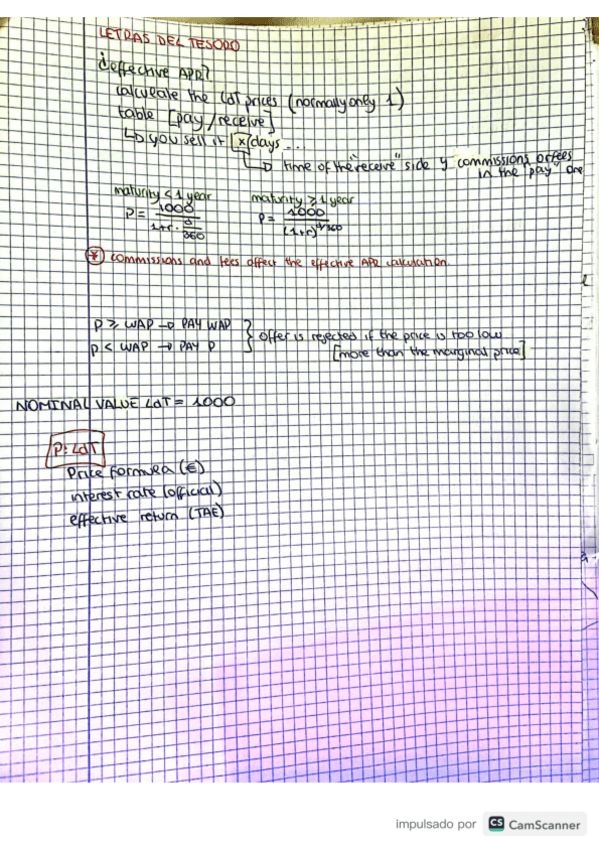 LETRAS DEL TESORO
¿effective APR?
calculate the LdT prices (normally only 1)
table [pay/receive]
↳ you sell it x days ...
↳ time of the "receive" side y commissions or fees
in the "pay" one
maturity < 1 year maturity ≥ 1 year
P = 1000 / (1+r · d/360) P = 1000 / (1+r)^(d/360)
(*) commissions and fees affect the effective APR calculation.
P ≥ WAP → PAY WAP
P < WAP → PAY P
} offer is rejected if the price is too low
[more than the marginal price]
NOMINAL VALUE LdT = 1000
P: LdT
Price formula (€)
interest rate (official)
effective return (TAE)
impulsado por CS CamScanner